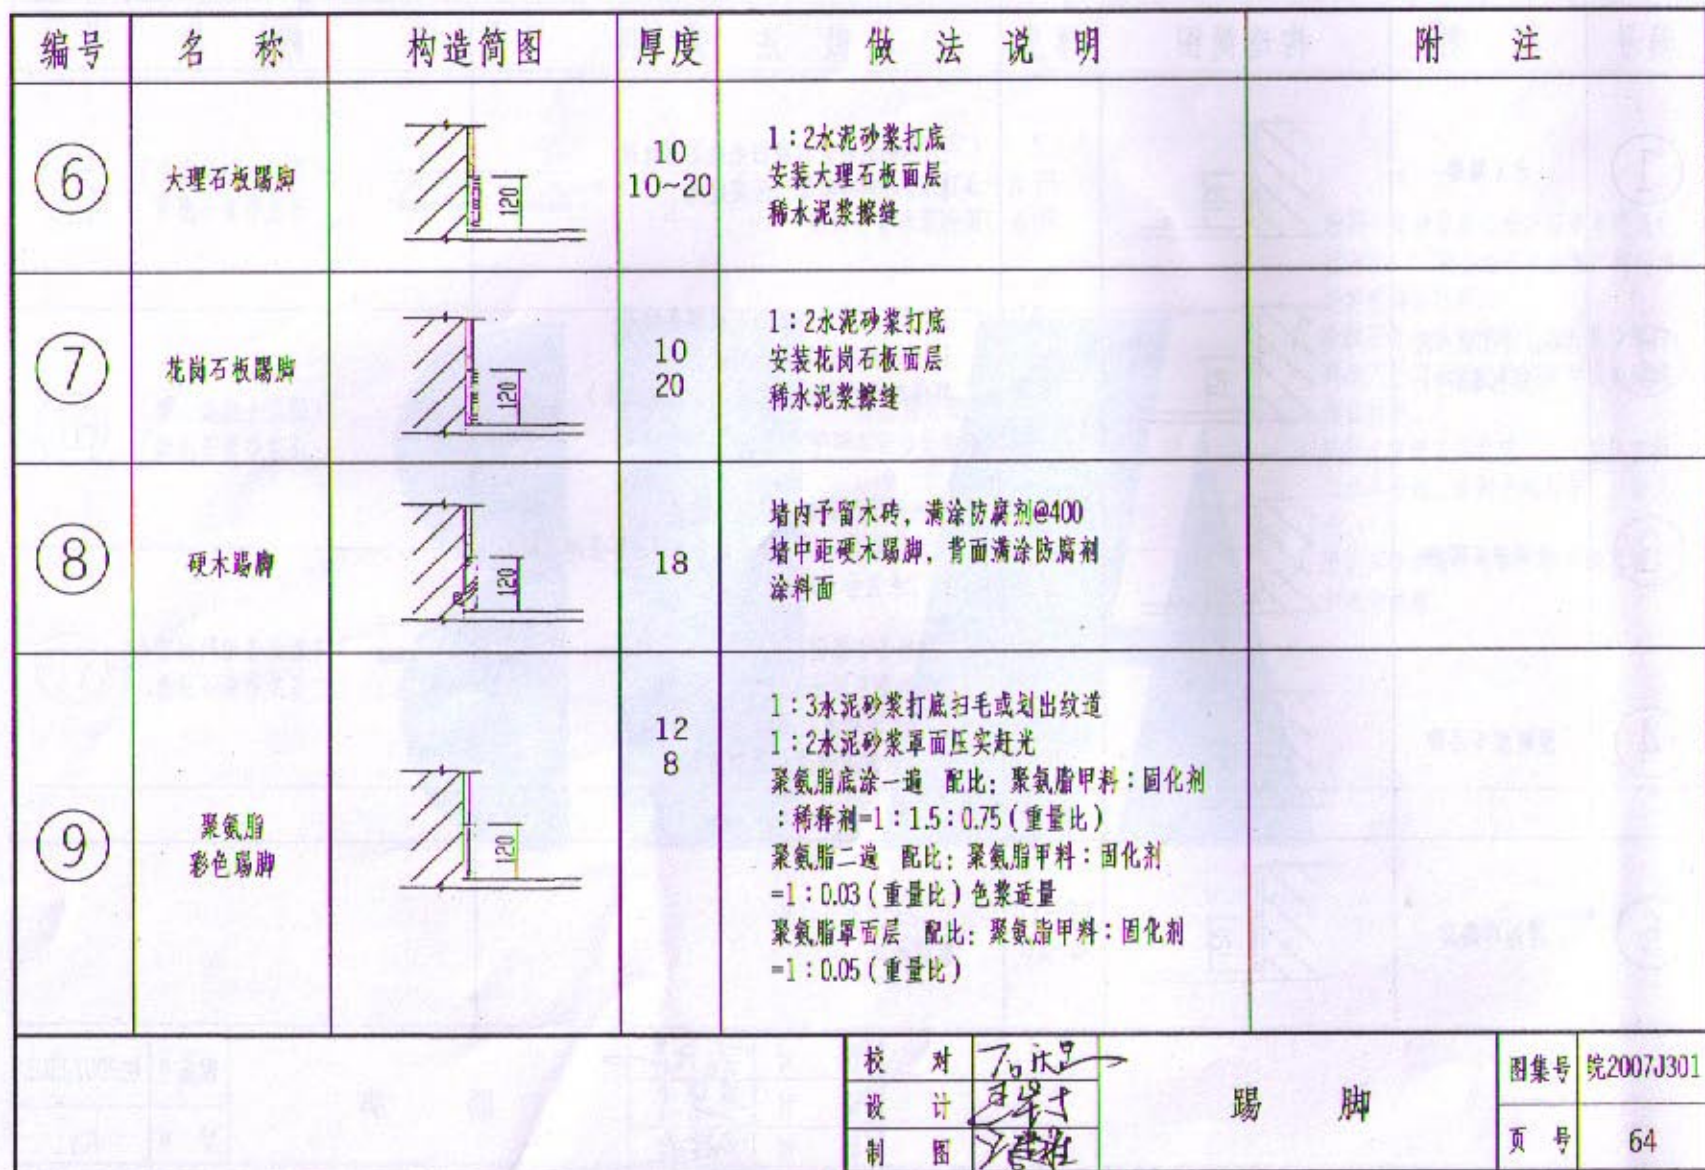 编号 名 称 构造简图 厚度 做 法 说 明 附 注
6 大理石板踢脚 120
10
10~20
1:2水泥砂浆打底
安装大理石板面层
稀水泥浆擦缝
7 花岗石板踢脚 120
10
20
1:2水泥砂浆打底
安装花岗石板面层
稀水泥浆擦缝
8 硬木踢脚 120
18
墙内予留木砖,满涂防腐剂@400
墙中距硬木踢脚,背面满涂防腐剂
涂料面
9 聚氨脂
彩色踢脚
120
12
8
1:3水泥砂浆打底扫毛或划出纹道
1:2水泥砂浆罩面压实赶光
聚氨脂底涂一遍 配比:聚氨脂甲料:固化剂
:稀释剂=1:1.5:0.75(重量比)
聚氨脂二遍 配比:聚氨脂甲料:固化剂
=1:0.03(重量比)色浆适量
聚氨脂罩面层 配比:聚氨脂甲料:固化剂
=1:0.05(重量比)
校 对
设 计
制 图
踢 脚
图集号 皖2007J301
页 号 64